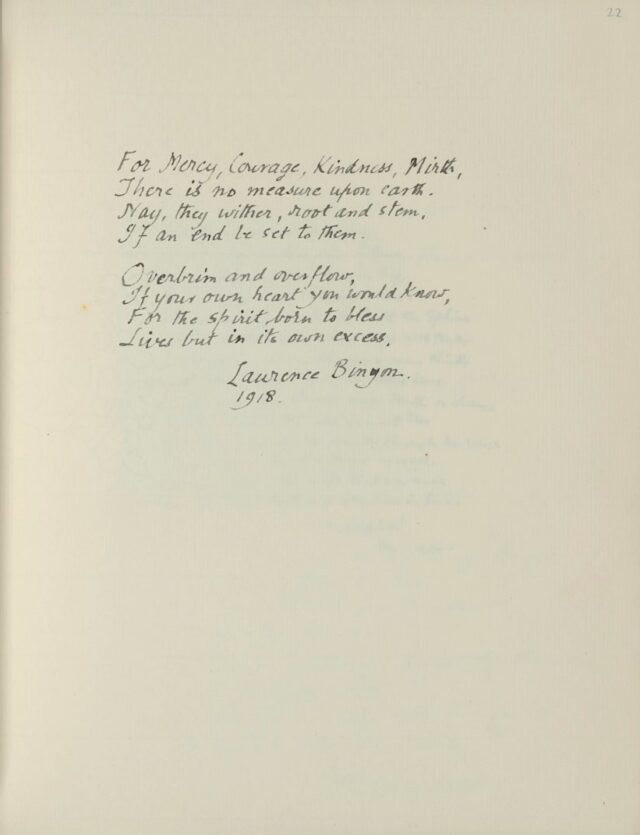 22
For Mercy, Courage, Kindness, Mirth,
There is no measure upon earth.
Nay, they wither, root and stem,
If an end be set to them.
Overbrim and overflow,
If your own heart you would know,
For the spirit, born to bless
Lives but in its own excess.
Laurence Binyon.
1918.